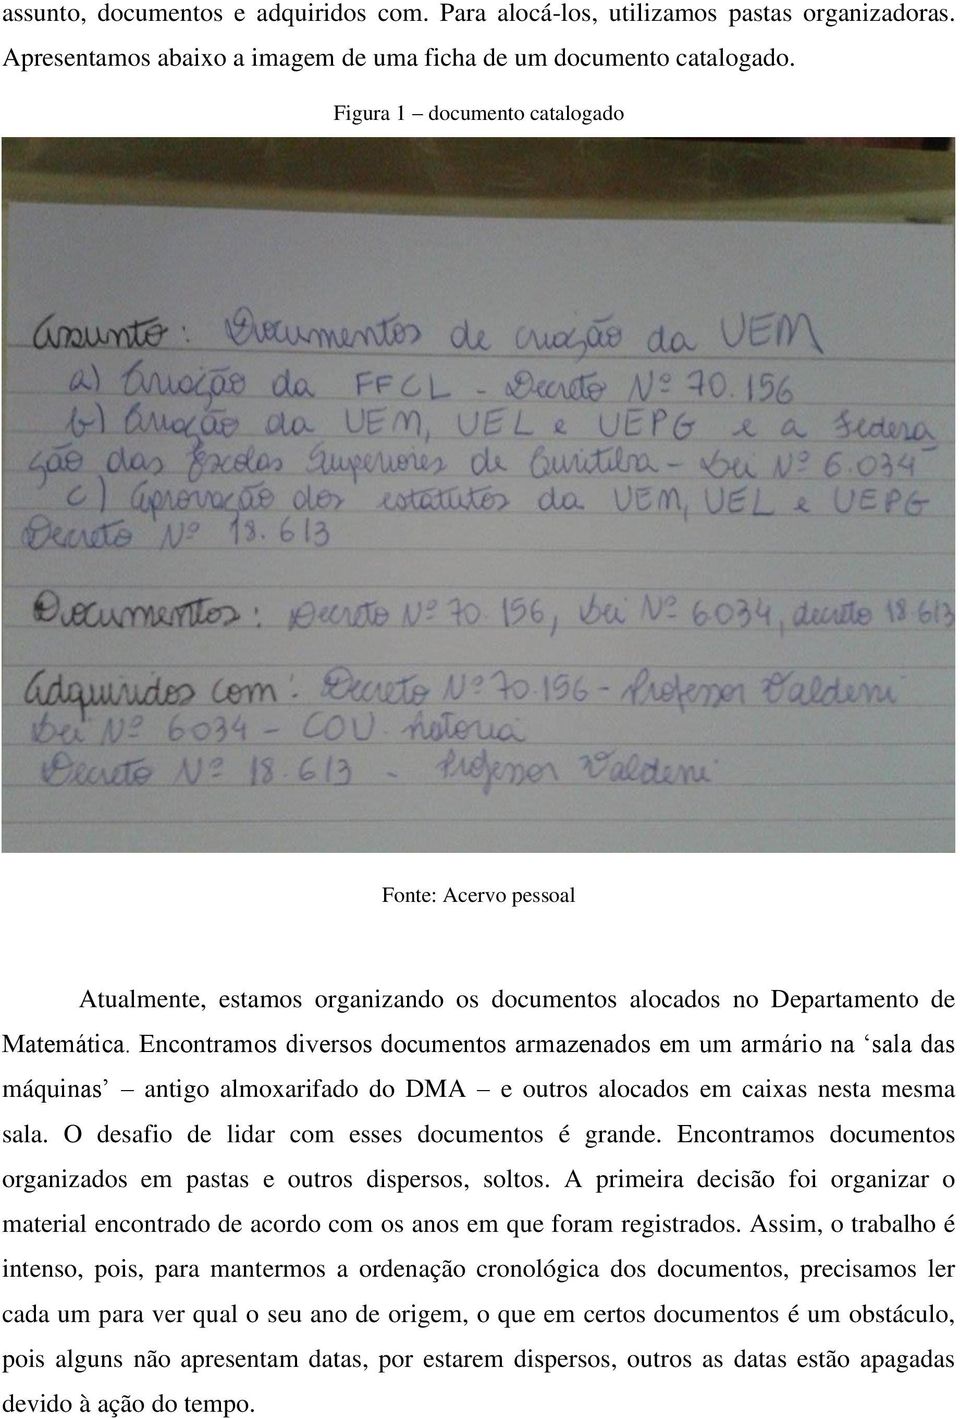 assunto, documentos e adquiridos com. Para alocá-los, utilizamos pastas organizadoras.
Apresentamos abaixo a imagem de uma ficha de um documento catalogado.
Figura 1 – documento catalogado
Assunto: Documentos de criação da UEM
a) Criação da FFCL - Decreto Nº 70.156
b) Criação da UEM, UEL e UEPG e a Federa
ção das Escolas Superiores de Curitiba - Lei Nº 6.034
c) Aprovação dos estatutos da UEM, UEL e UEPG
Decreto Nº 18.613
Documentos: Decreto Nº 70.156, Lei Nº 6034, decreto 18613
Adquiridos com: Decreto Nº 70.156 - Professor Valdeni
Lei Nº 6034 - COU. reitoria
Decreto Nº 18.613 - Professor Valdeni
Fonte: Acervo pessoal
Atualmente, estamos organizando os documentos alocados no Departamento de
Matemática. Encontramos diversos documentos armazenados em um armário na ‘sala das
máquinas’ – antigo almoxarifado do DMA – e outros alocados em caixas nesta mesma
sala. O desafio de lidar com esses documentos é grande. Encontramos documentos
organizados em pastas e outros dispersos, soltos. A primeira decisão foi organizar o
material encontrado de acordo com os anos em que foram registrados. Assim, o trabalho é
intenso, pois, para mantermos a ordenação cronológica dos documentos, precisamos ler
cada um para ver qual o seu ano de origem, o que em certos documentos é um obstáculo,
pois alguns não apresentam datas, por estarem dispersos, outros as datas estão apagadas
devido à ação do tempo.